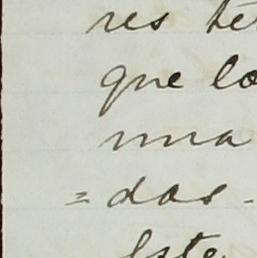 res te
que lo
una
=das-
Este